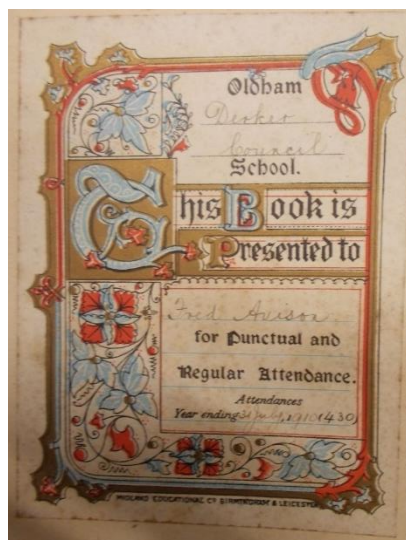 Oldham
Derker
Council
School.
This Book is
Presented to
Fred Avison
for Punctual and
Regular Attendance.
Attendances
Year ending 31 July, 1910 (430)
MIDLAND EDUCATIONAL CY BIRMINGHAM & LEICESTER